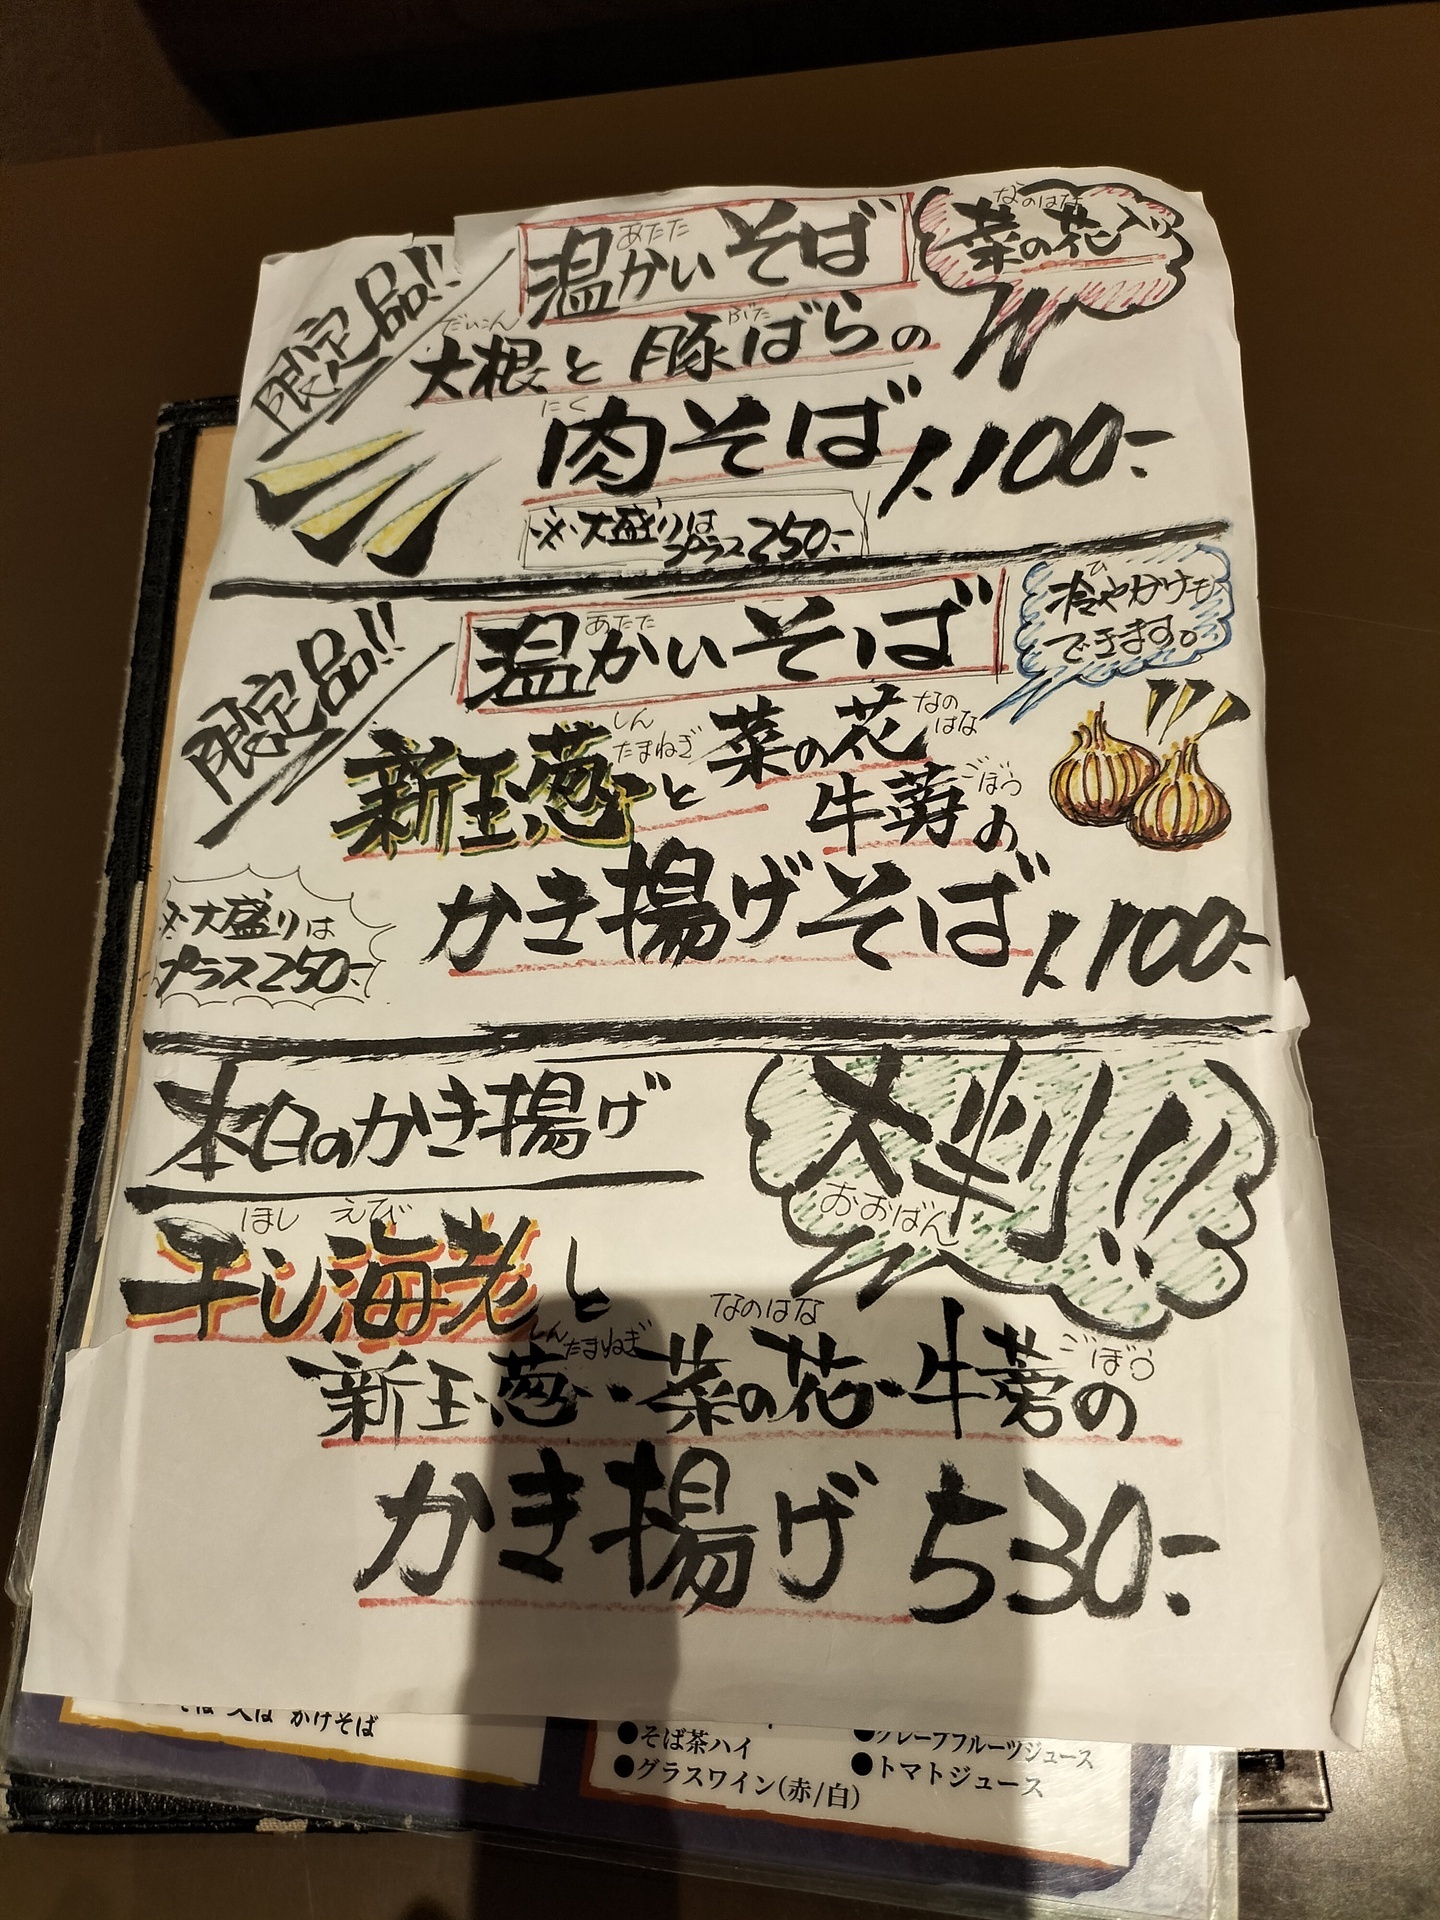 限定品!!
温かいそば
あたた
菜の花入り
なのはな
大根と豚ばらの
だいこん ぶた
肉そば 1,100-
にく
※大盛りは
プラス250-
限定品!!
温かいそば
あたた
冷やかけも
ひ
できます。
新玉葱と菜の花
しんたまねぎ なのはな
牛蒡の
ごぼう
かき揚げそば 1,100-
※大盛りは
プラス250-
本日のかき揚げ
大判!!
おおばん
干し海老と
ほし えび
新玉葱・菜の花・牛蒡の
しんたまねぎ なのはな ごぼう
かき揚げ 530-
かけそば
●そば茶ハイ
●グラスワイン(赤/白)
●グレープフルーツジュース
●トマトジュース